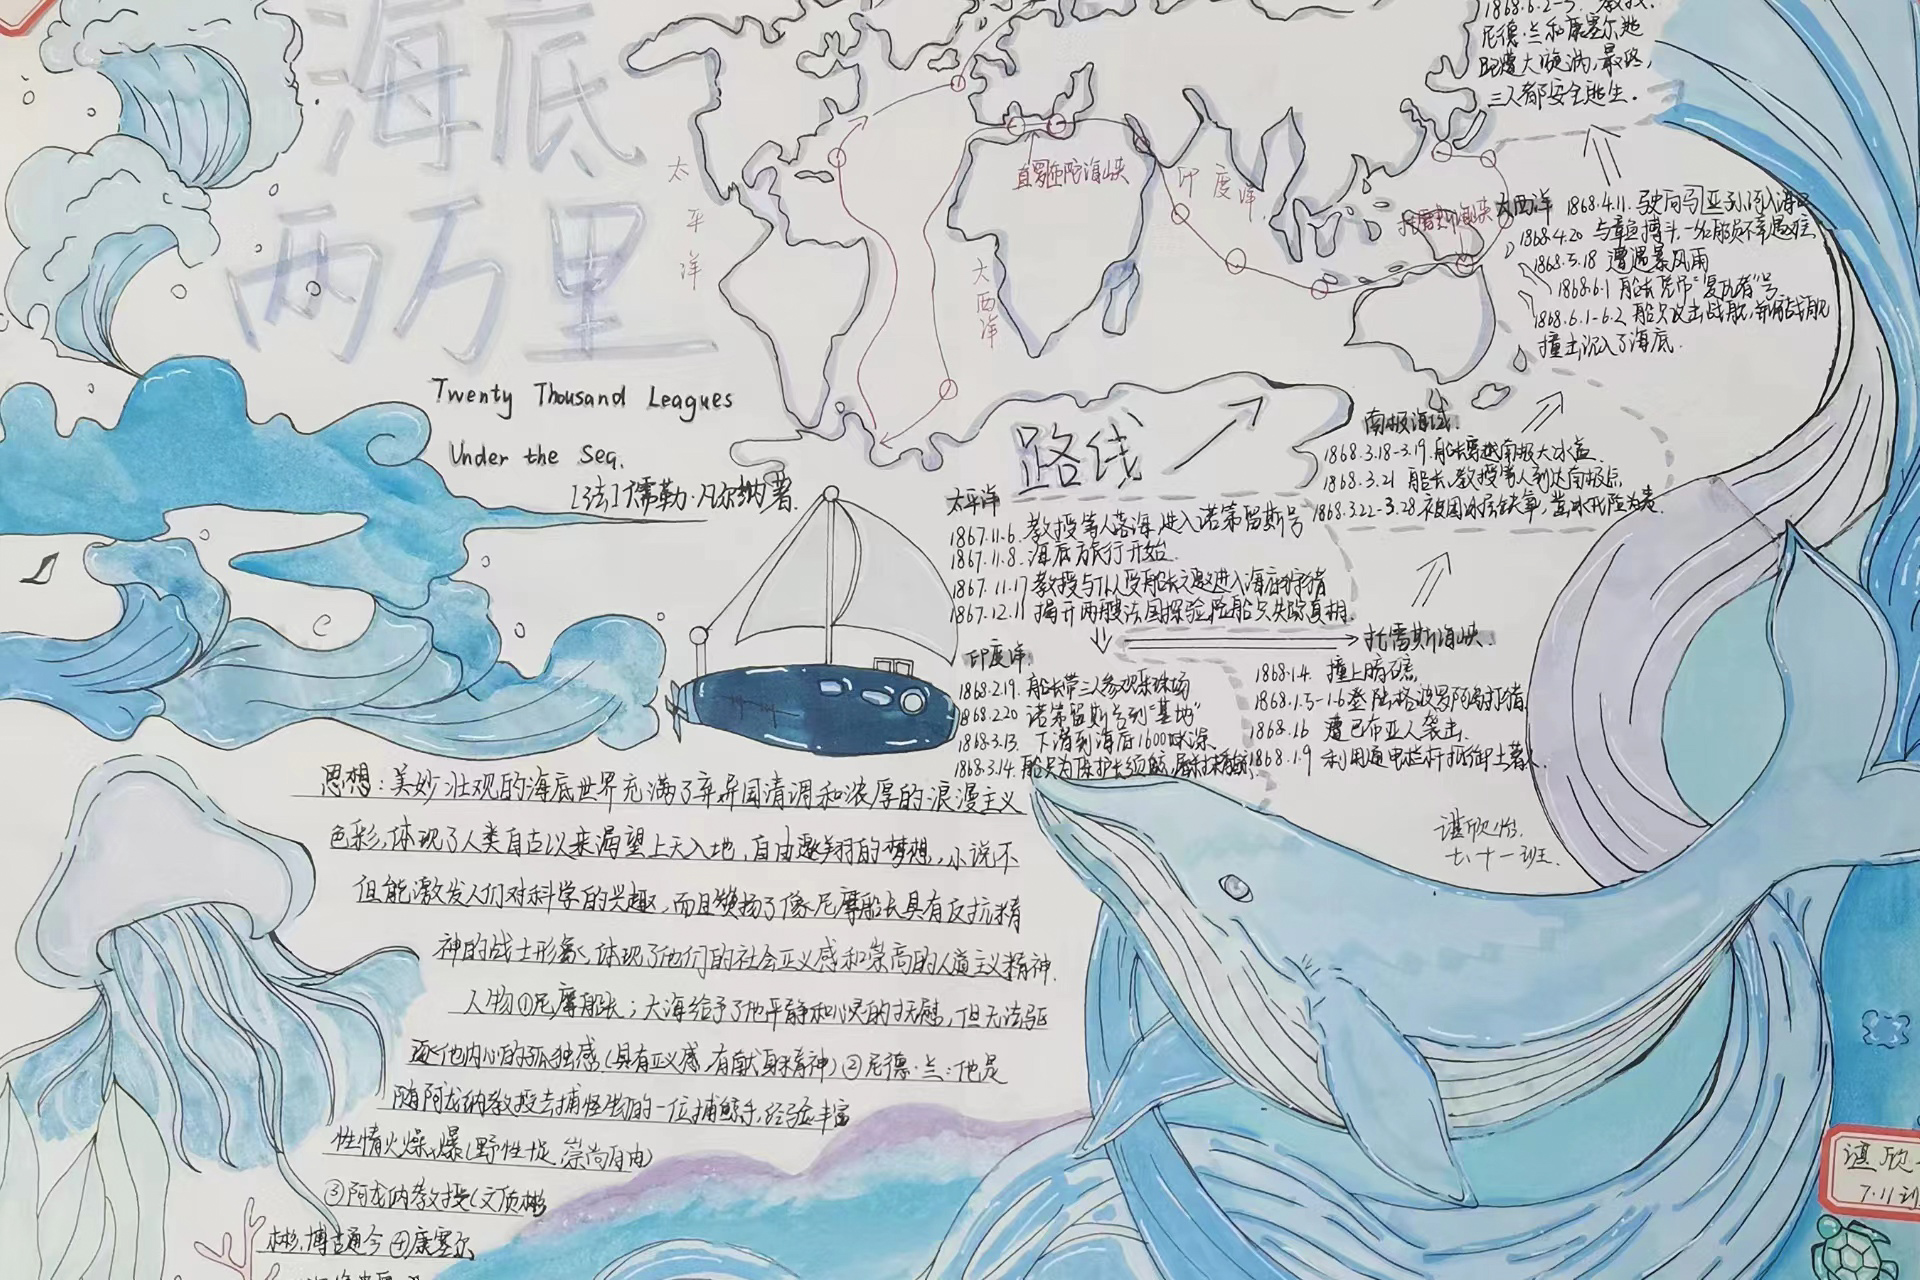 海底
两万里
Twenty Thousand Leagues
Under the Sea.
[法]儒勒·凡尔纳著.
太平洋
大西洋
直罗伍陀海峡
印度洋
路线
1868.6.2-3. 教授.
尼德·兰和康塞尔逃
大旋涡,最终,
三人都安全逃生.
大西洋 1868.4.11. 驶向马亚孙河入海口
1868.4.20 与章鱼搏斗.一名船员不幸遇难.
1868.5.18 遭遇暴风雨
1868.6.1 船长凭吊"复仇者"号
1868.6.1-6.2 船只攻击战舰,并将战舰
撞击沉入了海底.
南极海域.
1868.3.18-3.19.船长穿越南极大冰盖.
1868.3.21 船长,教授等人到达南极点
1868.3.22-3.28.
太平洋
1867.11.6.教授等人落海,进入诺第留斯号
1867.11.8.海底旅行开始.
1867.11.17教授与仆人受船长之邀进入海底狩猎
1867.12.11 揭开两艘法国探险船只失踪真相.
托雷斯海峡.
1868.1.4. 撞上暗礁
1868.1.5-1.6登陆格波罗阿岛打猎
1868.1.6 遭巴布亚人袭击.
1868.1.9 利用通电栏杆抵御土著人.
印度洋.
1868.2.19. 船长带三人参观采珠场
1868.2.20 诺第留斯号到"基地"
1868.3.13. 下潜到海底16000米深.
1868.3.14.船只为保护长须鲸,屠杀抹香鲸.
谌欣怡.
七、十一班.
思想:美妙壮观的海底世界充满了弃异国清调和浓厚的浪漫主义
色彩,体现了人类自古以来渴望上天入地,自由遨翔的梦想,小说不
但能激发人们对科学的兴趣,而且赞扬了像尼摩船长具有反抗精
神的战士形象,体现了他们的社会正义感和崇高的人道主义精神.
人物①尼摩船长;大海给予了他平静和心灵的抚慰,但无法驱
逐他内心的孤独感(具有正义感,有献身精神)②尼德·兰:他是
随阿龙纳教授去捕怪物的一位捕鲸手,经验丰富
性情火燥、爆(野性十足,崇尚自由)
③阿龙纳教授(文质彬
彬,博古通今④康塞尔
谌欣
7.11班